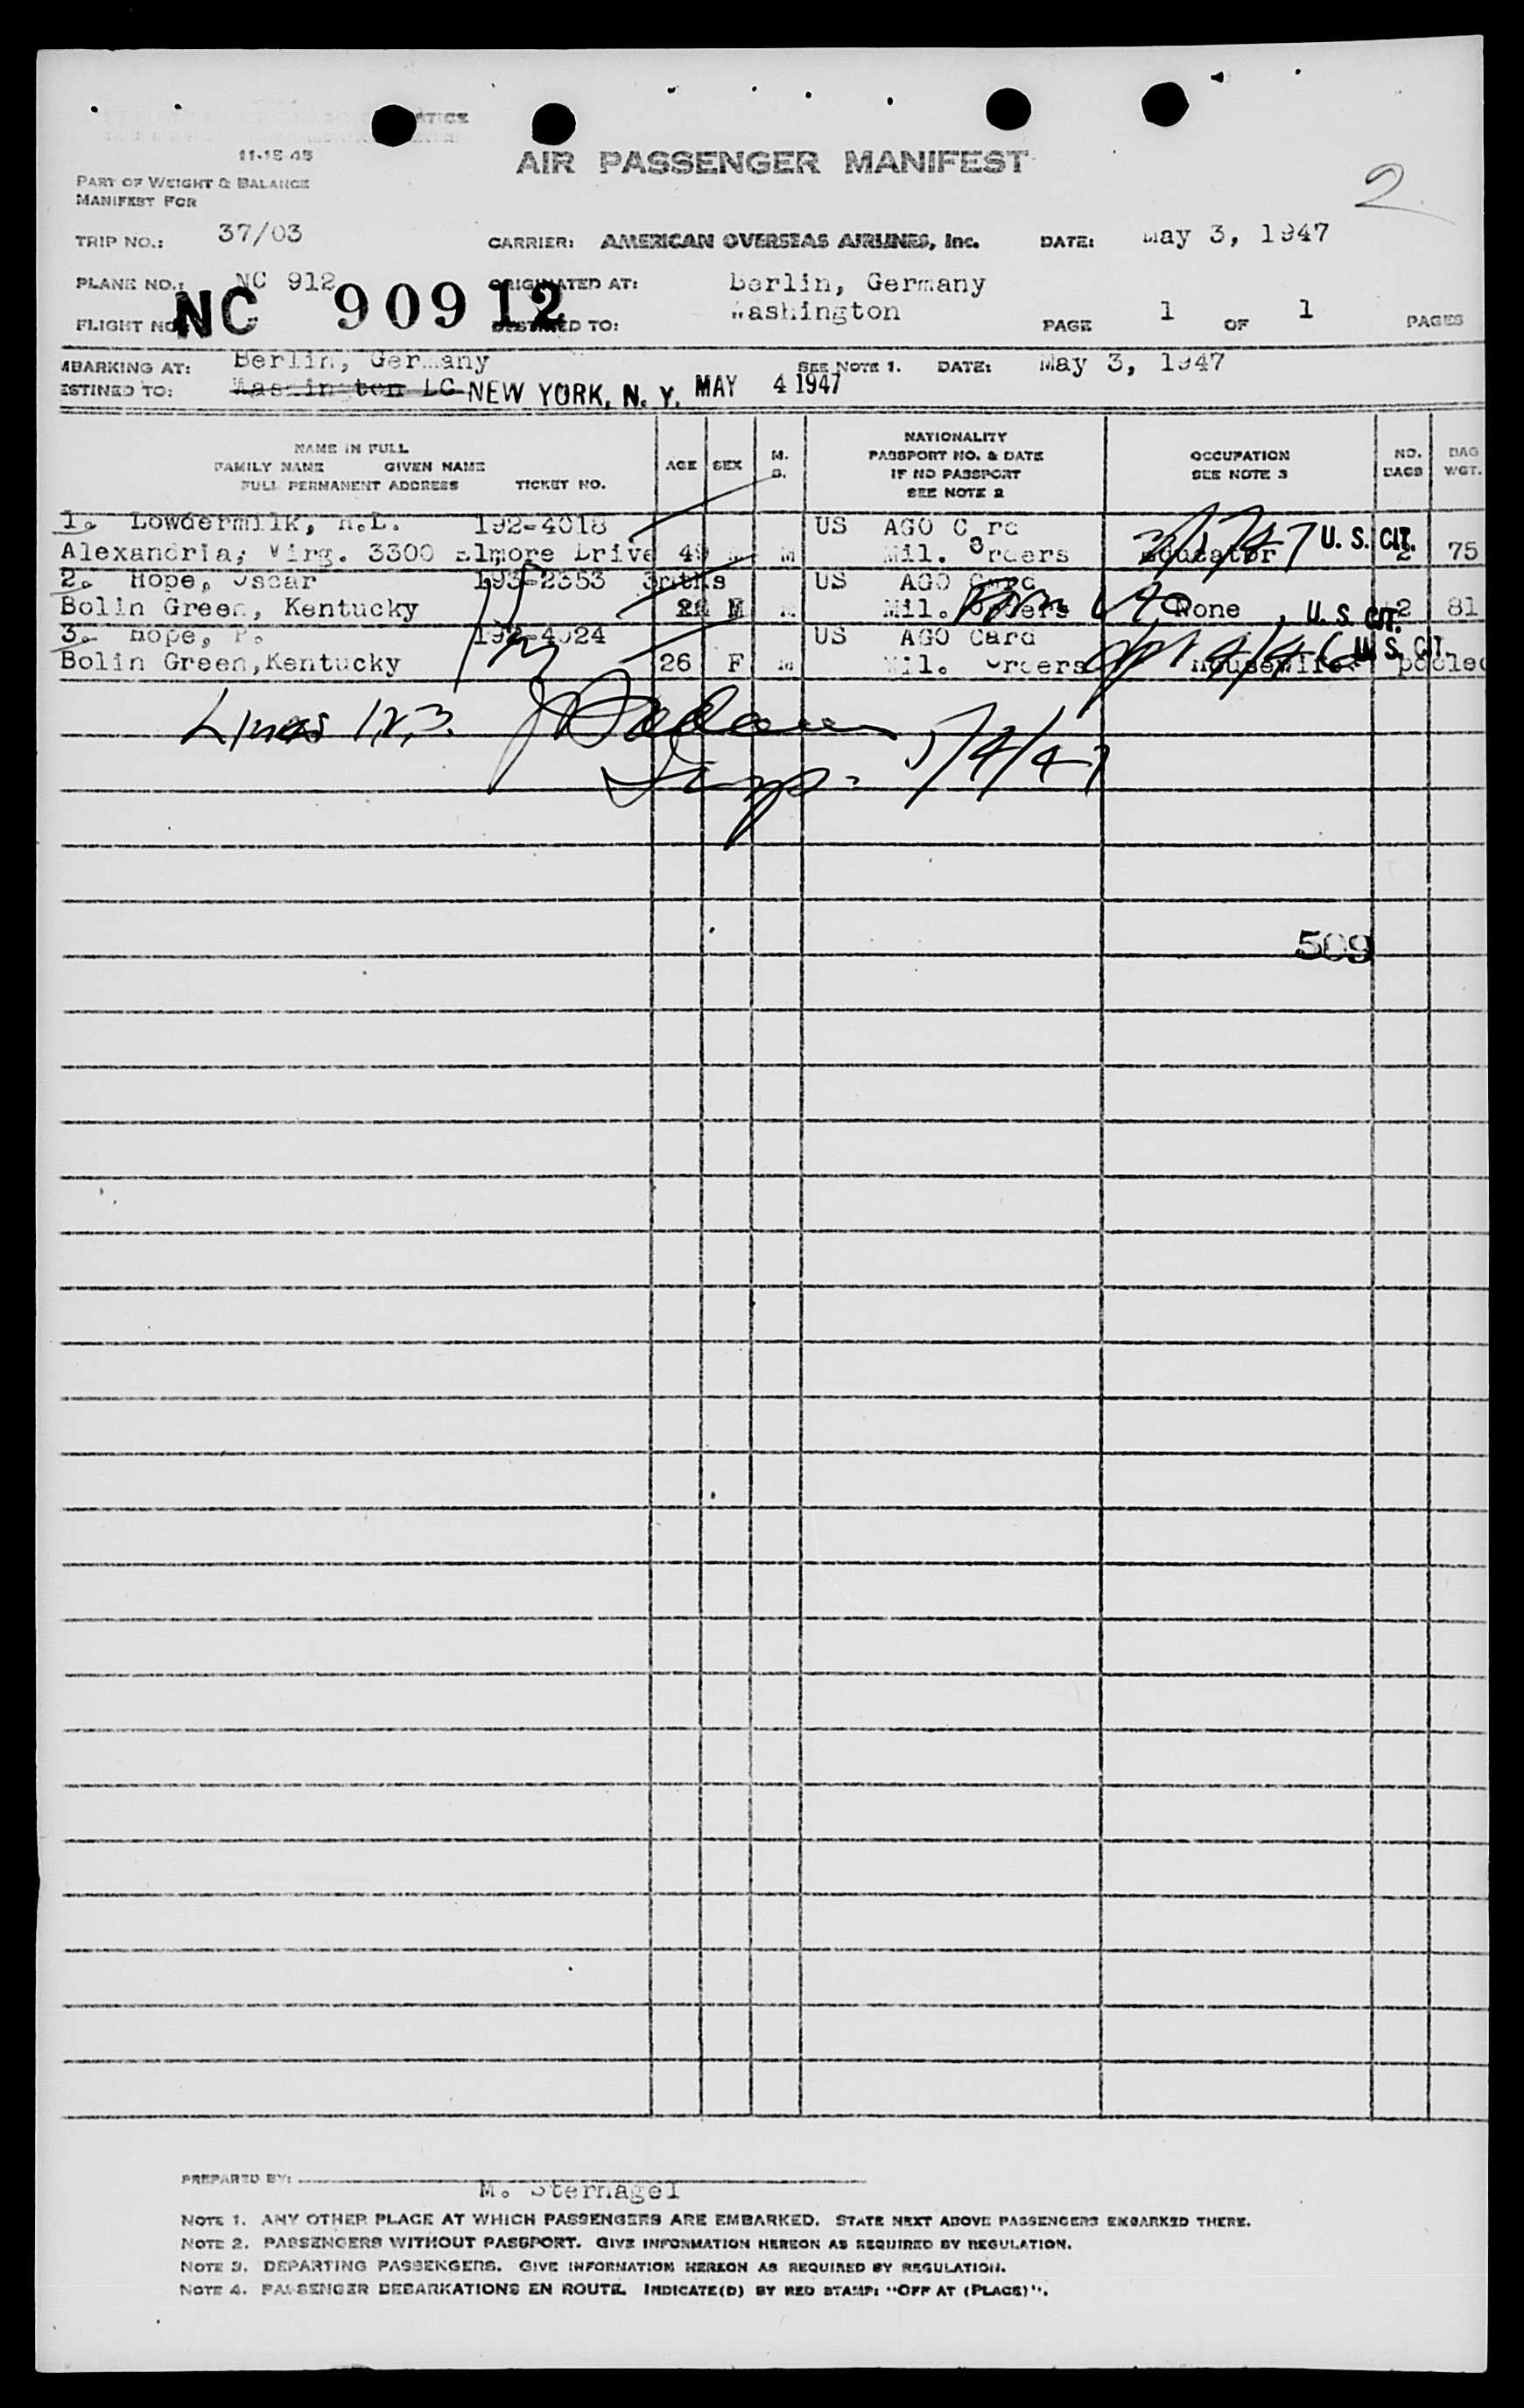 11-15-45
AIR PASSENGER MANIFEST
2
PART OF WEIGHT & BALANCE
MANIFEST FOR
TRIP NO.: 37/03 CARRIER: AMERICAN OVERSEAS AIRLINES, Inc. DATE: May 3, 1947
PLANE NO.: NC 912 ORIGINATED AT: Berlin, Germany
NC 90912
FLIGHT NO DESTINED TO: Washington PAGE 1 OF 1 PAGES
MBARKING AT: Berlin, Germany SEE NOTE 1. DATE: May 3, 1947
ESTINED TO: Washington DC NEW YORK, N. Y. MAY 4 1947
NAME IN FULL
FAMILY NAME GIVEN NAME
FULL PERMANENT ADDRESS TICKET NO.
AGE SEX M. S.
NATIONALITY
PASSPORT NO. & DATE
IF NO PASSPORT
SEE NOTE 2
OCCUPATION
SEE NOTE 3
NO. BAGS
BAG WGT.
1. Lowdermilk, R.L. 192-4018 US AGO Card
Alexandria, Virg. 3300 Elmore Drive 49 M M Mil. Orders Educator U. S. CIT. 2 75
2. Hope, Oscar 193-2353 3mths US AGO Card
Bolin Green, Kentucky M M Mil. Orders None U. S. CIT. 2 81
3. Hope, P. 192-4024 US AGO Card
Bolin Green,Kentucky 26 F M Mil. Orders Housewife U. S. CIT. pooled
Lines 1,2,3.
Insp. 5/4/47
509
PREPARED BY: M. Sternagel
NOTE 1. ANY OTHER PLACE AT WHICH PASSENGERS ARE EMBARKED. STATE NEXT ABOVE PASSENGERS EMBARKED THERE.
NOTE 2. PASSENGERS WITHOUT PASSPORT. GIVE INFORMATION HEREON AS REQUIRED BY REGULATION.
NOTE 3. DEPARTING PASSENGERS. GIVE INFORMATION HEREON AS REQUIRED BY REGULATION.
NOTE 4. PASSENGER DEBARKATIONS EN ROUTE. INDICATE(D) BY RED STAMP: "OFF AT (PLACE)".